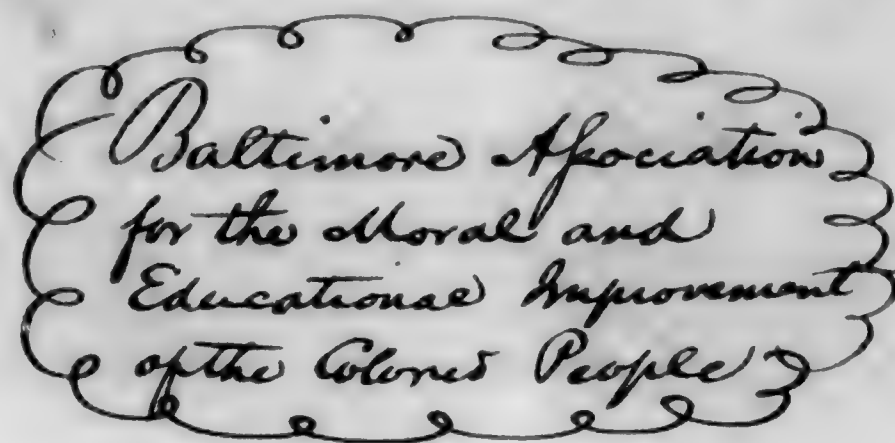 Baltimore Association
for the Moral and
Educational Improvement
of the Colored People